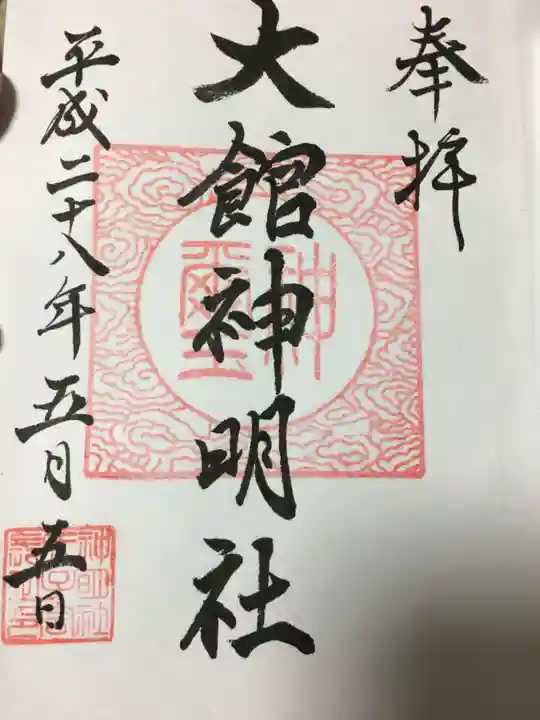 奉拝
大館神明社
平成二十八年五月五日
神璽